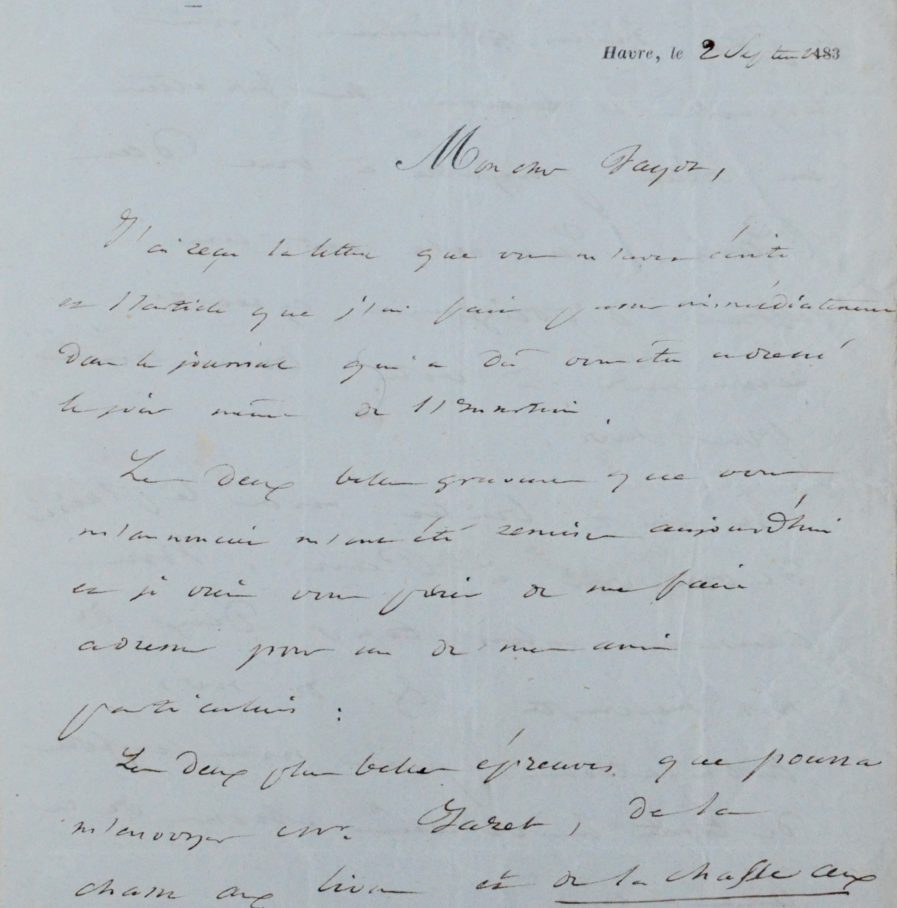 Havre, le 2 Septembre 183
Mon cher Fayot,
J'ai reçu la lettre que vous m'avez écrite
et l'article que j'ai fait passer immédiatement
dans le journal qui a dû vous être adressé
le jour même de l'Insertion.
Les deux belles gravures que vous
m'annonciez m'ont été remises aujourd'hui
et je viens vous prier de me faire
adresser pour un de mes amis
particuliers :
Les deux plus belles épreuves que pourra
m'envoyer mr. Jazet, de la
chasse aux lions et de la chasse aux